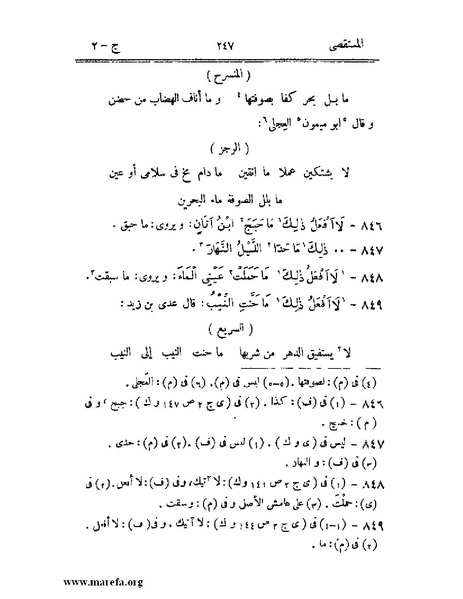 المستقصى ٢٤٧ ج - ٢
( المنسرح )
ما بل بحر كفا بصوفتها٤ و ما أناف الهضاب من حضن
و قال ٥ابو ميمون٥ العجلى٦:
( الرجز )
لا يشتكين عملا ما انقين ما دام مخ فى سلامى أو عين
ما بلل الصوفة ماء البحرين
٨٤٦ - لَا أَفْعَلُ ذٰلِكَ١ مَا حَبَجَ٢ ابْنُ أَتَانٍ: و يروى: ما حبق.
٨٤٧ - ٠٠ ذٰلِكَ١ مَا حَدَا٢ اللَّيْلُ النَّهَارَ٣.
٨٤٨ - ١لَا أَفْعَلُ ذٰلِكَ١ مَا حَمَلَتْ٢ عَيْنِى الْمَاءَ: و يروى: ما سبقت٣.
٨٤٩ - ١لَا أَفْعَلُ ذٰلِكَ١ مَا حَنَّتِ النِّيْبُ: قال عدى بن زيد:
( السريع )
لا٢ يستفيق الدهر من شربها ما حنت النيب إلى النيب
(٤) فى (م): لصوفتها. (٥-٥) ليس فى (م). (٦) فى (م): العجلى.
٨٤٦ - (١) فى (ف): كذا. (٢) فى (ى ج ٢ ص ١٤٧ و ك): جبح، و فى
(م): خبج.
٨٤٧ - ليس فى (ى و ك). (١) ليس فى (ف). (٢) فى (م): حدى.
(٣) فى (ف): و النهار.
٨٤٨ - (١) فى (ى ج ٢ ص ١٤١ و ك): لا آتيك، وفى (ف): لا أفعل. (٢) فى
(ى): حملَت. (٣) على هامش الأصل و فى (م): وسقت.
٨٤٩ - (١-١) فى (ى ج ٢ ص ١٤٤ و ك): لا آتيك، و فى (ف): لا أفعل.
(٢) فى (م): ما.
www.marefa.org